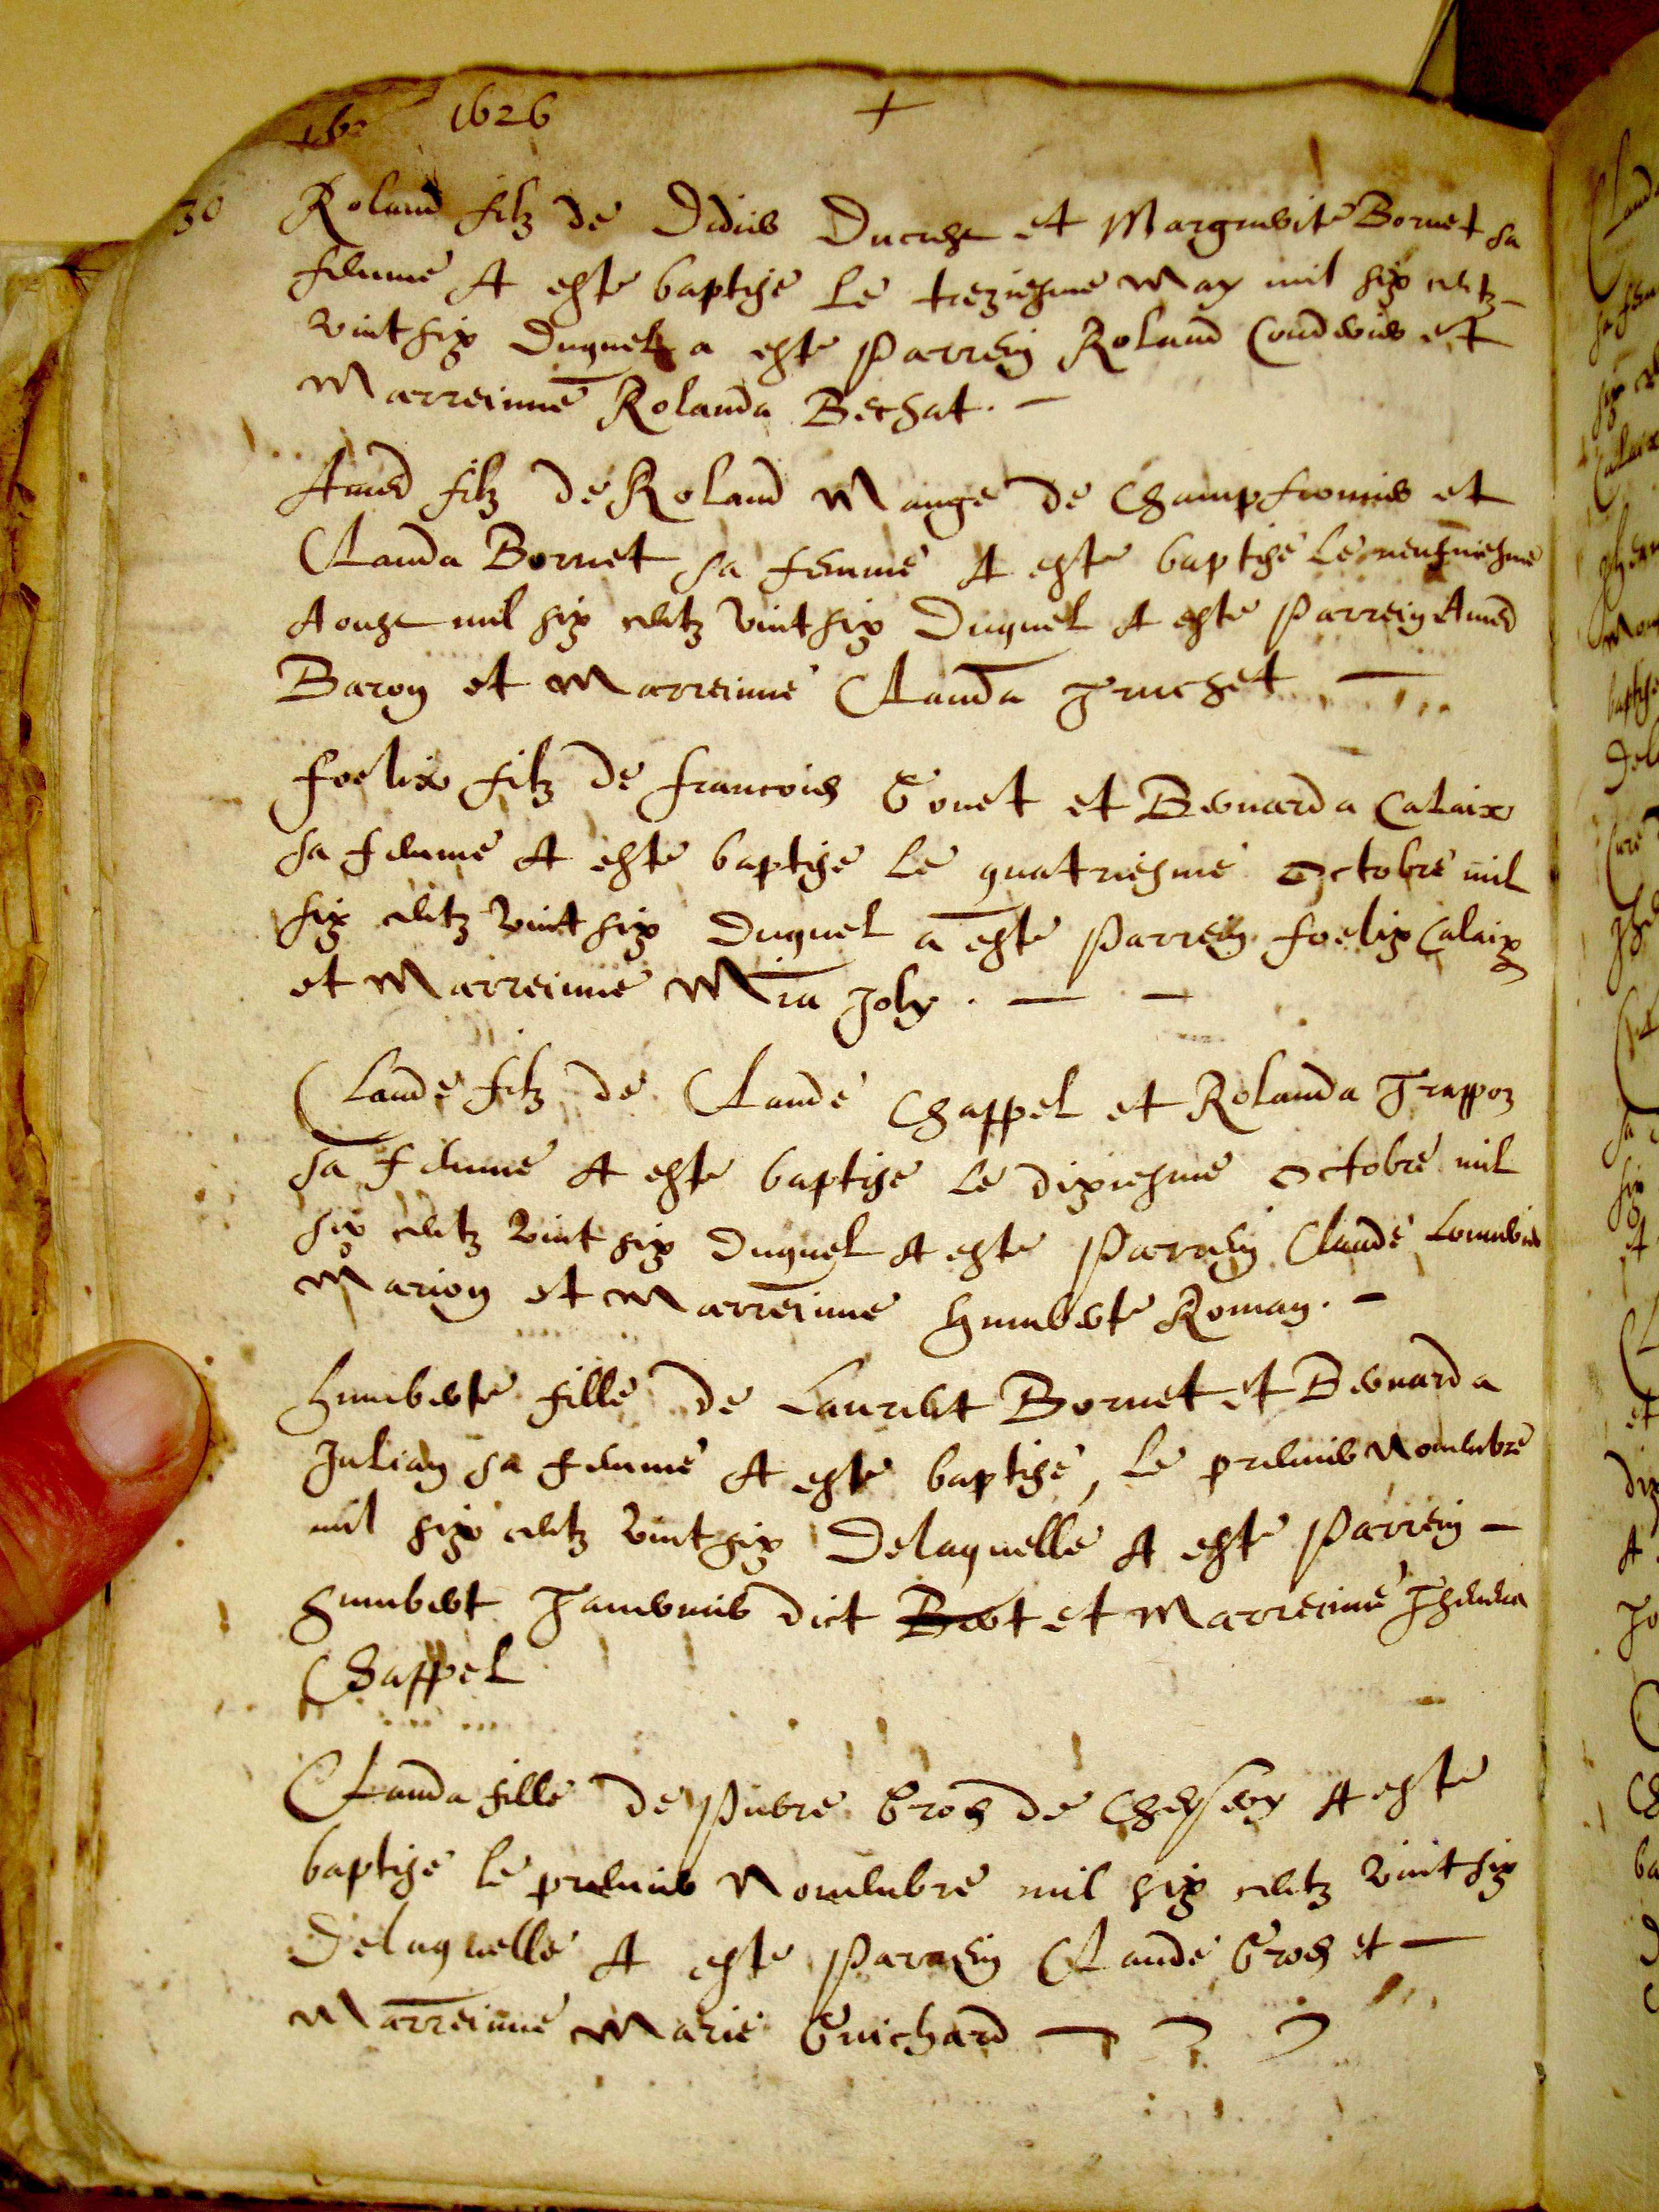 1626
30
Roland filz de Didier Ducrest et Marguerite Bornet sa
femme A este baptise le treziesme May mil six centz
vint six Duquel a este Parrein Roland Coudurier et
Marreinne Rolanda Bechat.
Amed filz de Roland Mange de Champfromier et
Clauda Bornet sa femme A este baptise le neufviesme
Aoust mil six centz vint six Duquel A este Parrein Amed
Baron et Marreinne Clauda Truchet
Foelix filz de Francois Genet et Bernarda Calaix
sa femme A este baptise le quatriesme Octobre mil
six centz vint six Duquel a este Parrein Foelix Calaix
et Marreinne Mia Joly.
Claude filz de Claude Chappel et Rolanda Trappoz
sa femme A este baptise le dixiesme Octobre mil
six centz vint six Duquel A este Parrein Claude
Marion et Marreinne Humberte Roman.
Humberte fille de Laurent Bornet et Bernarda
Julian sa femme A este baptise, le premier Novembre
mil six centz vint six Delaquelle A este Parrein
Humbert Tavernier dict Bert et Marreinne Thevena
Chappel
Clauda fille de Pierre Gros de Chesery A este
baptise le premier Novembre mil six centz vint six
Delaquelle A este Parrein Claude Gros et
Marreinne Marie Guichard